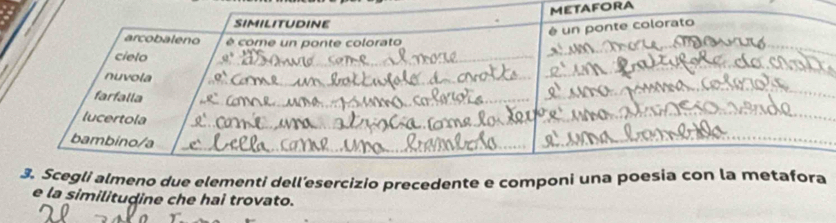 SIMILITUDINE METAFORA
arcobaleno è come un ponte colorato è un ponte colorato
cielo e' come il mare e' un mare
nuvola e' come un batuffolo di e' un batuffolo
farfalla e' come una piuma colorata e' una piuma colorata
lucertola e' come una striscia come e' una striscia verde
bambino/a e' bella come una bambola e' una bambola
3. Scegli almeno due elementi dell'esercizio precedente e componi una poesia con la metafora
e la similitudine che hai trovato.